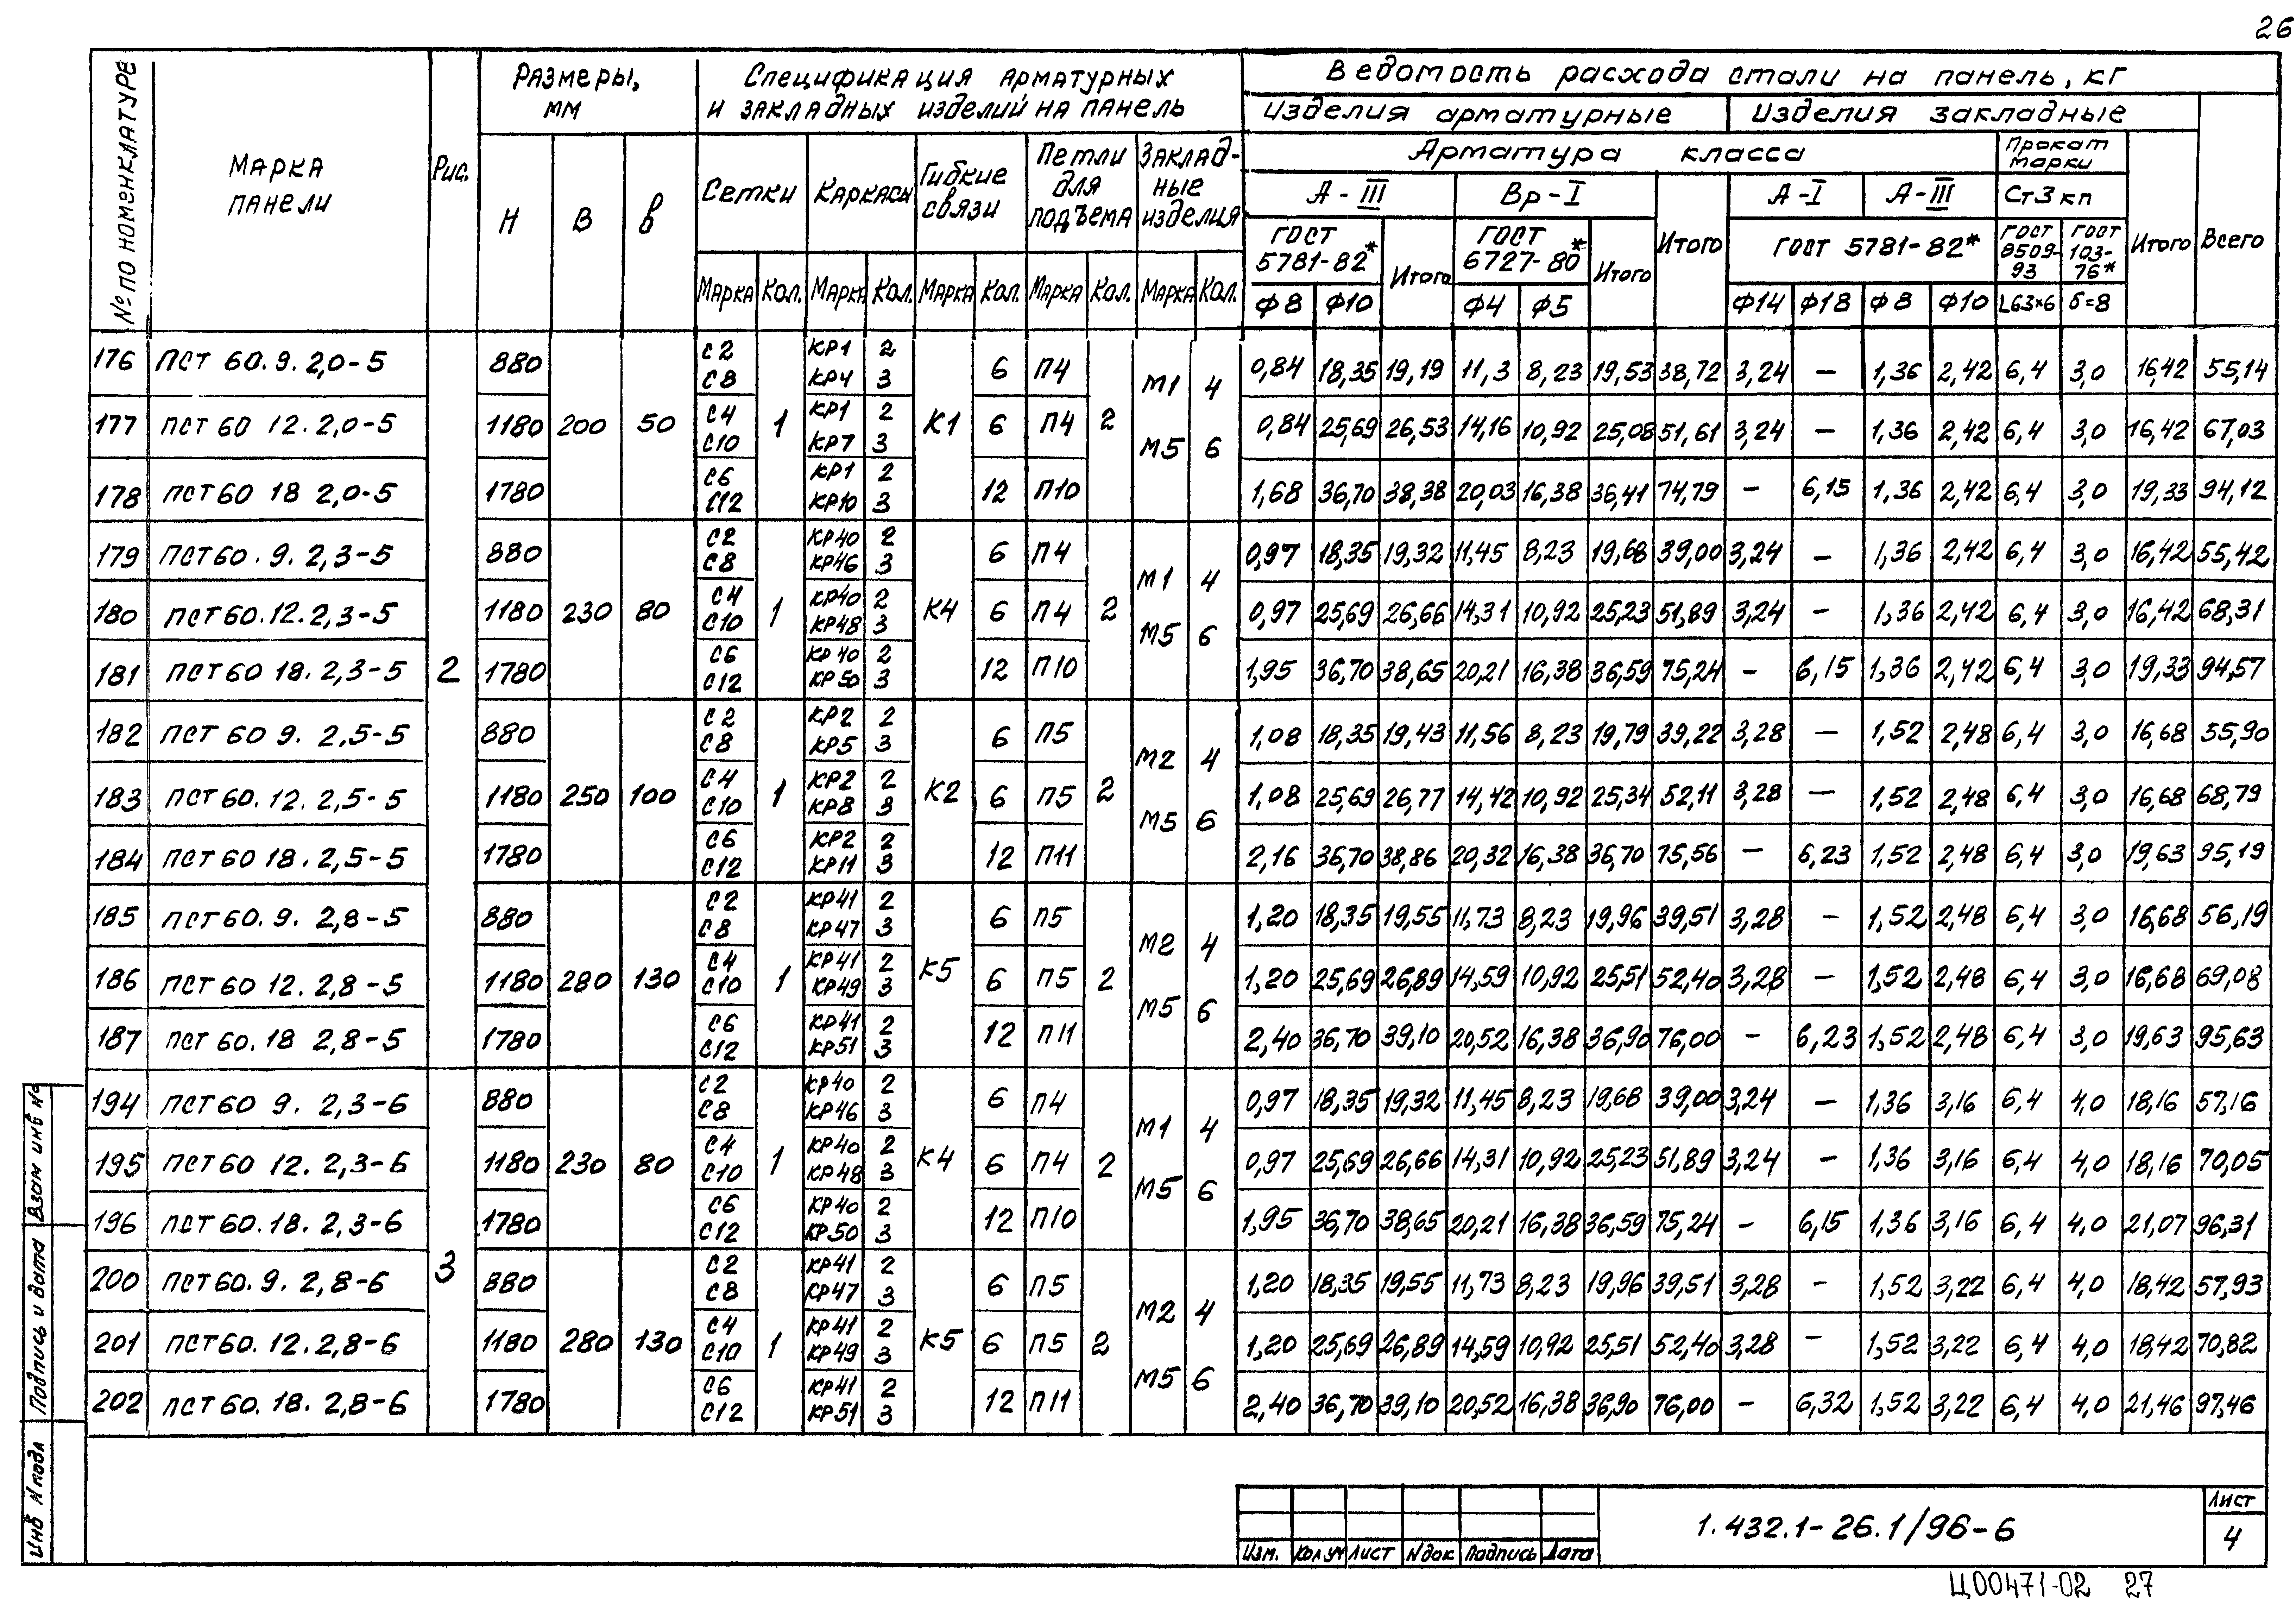 26
№ ПО НОМЕНКЛАТУРЕ
МАРКА ПАНЕЛИ
Рис.
Размеры, мм
H B в
Спецификация арматурных и закладных изделий на панель
Сетки Каркасы Гибкие связи Петли для подъема Закладные изделия
Марка Кол. Марка Кол. Марка Кол. Марка Кол. Марка Кол.
Ведомость расхода стали на панель, кг
Изделия арматурные Изделия закладные
Арматура класса Прокат марки
А-III Вр-I Итого А-I А-III Ст3кп Итого Всего
ГОСТ 5781-82* Итого ГОСТ 6727-80* Итого ГОСТ 5781-82* ГОСТ 8509-93 ГОСТ 103-76*
Ф8 Ф10 Ф4 Ф5 Ф14 Ф18 Ф8 Ф10 L63×6 δ=8
176 ПСТ 60.9.2,0-5 880 С2 С8 КР1 2 КР4 3 6 П4 0,84 18,35 19,19 11,3 8,23 19,53 38,72 3,24 — 1,36 2,42 6,4 3,0 16,42 55,14
М1 4
177 ПСТ 60 12.2,0-5 1180 200 50 С4 С10 1 КР1 2 КР7 3 К1 6 П4 2 0,84 25,69 26,53 14,16 10,92 25,08 51,61 3,24 — 1,36 2,42 6,4 3,0 16,42 67,03
М5 6
178 ПСТ 60 18 2,0-5 1780 С6 С12 КР1 2 КР10 3 12 П10 1,68 36,70 38,38 20,03 16,38 36,41 74,79 — 6,15 1,36 2,42 6,4 3,0 19,33 94,12
179 ПСТ 60.9.2,3-5 880 С2 С8 КР40 2 КР46 3 6 П4 0,97 18,35 19,32 11,45 8,23 19,68 39,00 3,24 — 1,36 2,42 6,4 3,0 16,42 55,42
М1 4
180 ПСТ 60.12.2,3-5 1180 230 80 С4 С10 1 КР40 2 КР48 3 К4 6 П4 2 0,97 25,69 26,66 14,31 10,92 25,23 51,89 3,24 — 1,36 2,42 6,4 3,0 16,42 68,31
М5 6
181 ПСТ 60 18.2,3-5 2 1780 С6 С12 КР40 2 КР50 3 12 П10 1,95 36,70 38,65 20,21 16,38 36,59 75,24 — 6,15 1,36 2,42 6,4 3,0 19,33 94,57
182 ПСТ 60 9.2,5-5 880 С2 С8 КР2 2 КР5 3 6 П5 1,08 18,35 19,43 11,56 8,23 19,79 39,22 3,28 — 1,52 2,48 6,4 3,0 16,68 55,90
М2 4
183 ПСТ 60.12.2,5-5 1180 250 100 С4 С10 1 КР2 2 КР8 3 К2 6 П5 2 1,08 25,69 26,77 14,42 10,92 25,34 52,11 3,28 — 1,52 2,48 6,4 3,0 16,68 68,79
М5 6
184 ПСТ 60 18.2,5-5 1780 С6 С12 КР2 2 КР11 3 12 П11 2,16 36,70 38,86 20,32 16,38 36,70 75,56 — 6,23 1,52 2,48 6,4 3,0 19,63 95,19
185 ПСТ 60.9.2,8-5 880 С2 С8 КР41 2 КР47 3 6 П5 1,20 18,35 19,55 11,73 8,23 19,96 39,51 3,28 — 1,52 2,48 6,4 3,0 16,68 56,19
М2 4
186 ПСТ 60 12.2,8-5 1180 280 130 С4 С10 1 КР41 2 КР49 3 К5 6 П5 2 1,20 25,69 26,89 14,59 10,92 25,51 52,40 3,28 — 1,52 2,48 6,4 3,0 16,68 69,08
М5 6
187 ПСТ 60.18 2,8-5 1780 С6 С12 КР41 2 КР51 3 12 П11 2,40 36,70 39,10 20,52 16,38 36,90 76,00 — 6,23 1,52 2,48 6,4 3,0 19,63 95,63
194 ПСТ 60 9.2,3-6 880 С2 С8 КР40 2 КР46 3 6 П4 0,97 18,35 19,32 11,45 8,23 19,68 39,00 3,24 — 1,36 3,16 6,4 4,0 18,16 57,16
М1 4
195 ПСТ 60 12.2,3-6 1180 230 80 С4 С10 1 КР40 2 КР48 3 К4 6 П4 2 0,97 25,69 26,66 14,31 10,92 25,23 51,89 3,24 — 1,36 3,16 6,4 4,0 18,16 70,05
М5 6
196 ПСТ 60.18.2,3-6 1780 С6 С12 КР40 2 КР50 3 12 П10 1,95 36,70 38,65 20,21 16,38 36,59 75,24 — 6,15 1,36 3,16 6,4 4,0 21,07 96,31
200 ПСТ 60.9.2,8-6 3 880 С2 С8 КР41 2 КР47 3 6 П5 1,20 18,35 19,55 11,73 8,23 19,96 39,51 3,28 — 1,52 3,22 6,4 4,0 18,42 57,93
М2 4
201 ПСТ 60.12.2,8-6 1180 280 130 С4 С10 1 КР41 2 КР49 3 К5 6 П5 2 1,20 25,69 26,89 14,59 10,92 25,51 52,40 3,28 — 1,52 3,22 6,4 4,0 18,42 70,82
М5 6
202 ПСТ 60.18.2,8-6 1780 С6 С12 КР41 2 КР51 3 12 П11 2,40 36,70 39,10 20,52 16,38 36,90 76,00 — 6,32 1,52 3,22 6,4 4,0 21,46 97,46
Взам инв №
Подпись и дата
Инв N подл
Изм. Кол уч Лист N док Подпись Дата
1.432.1-26.1/96-6
Лист
4
Ц00471-02 27